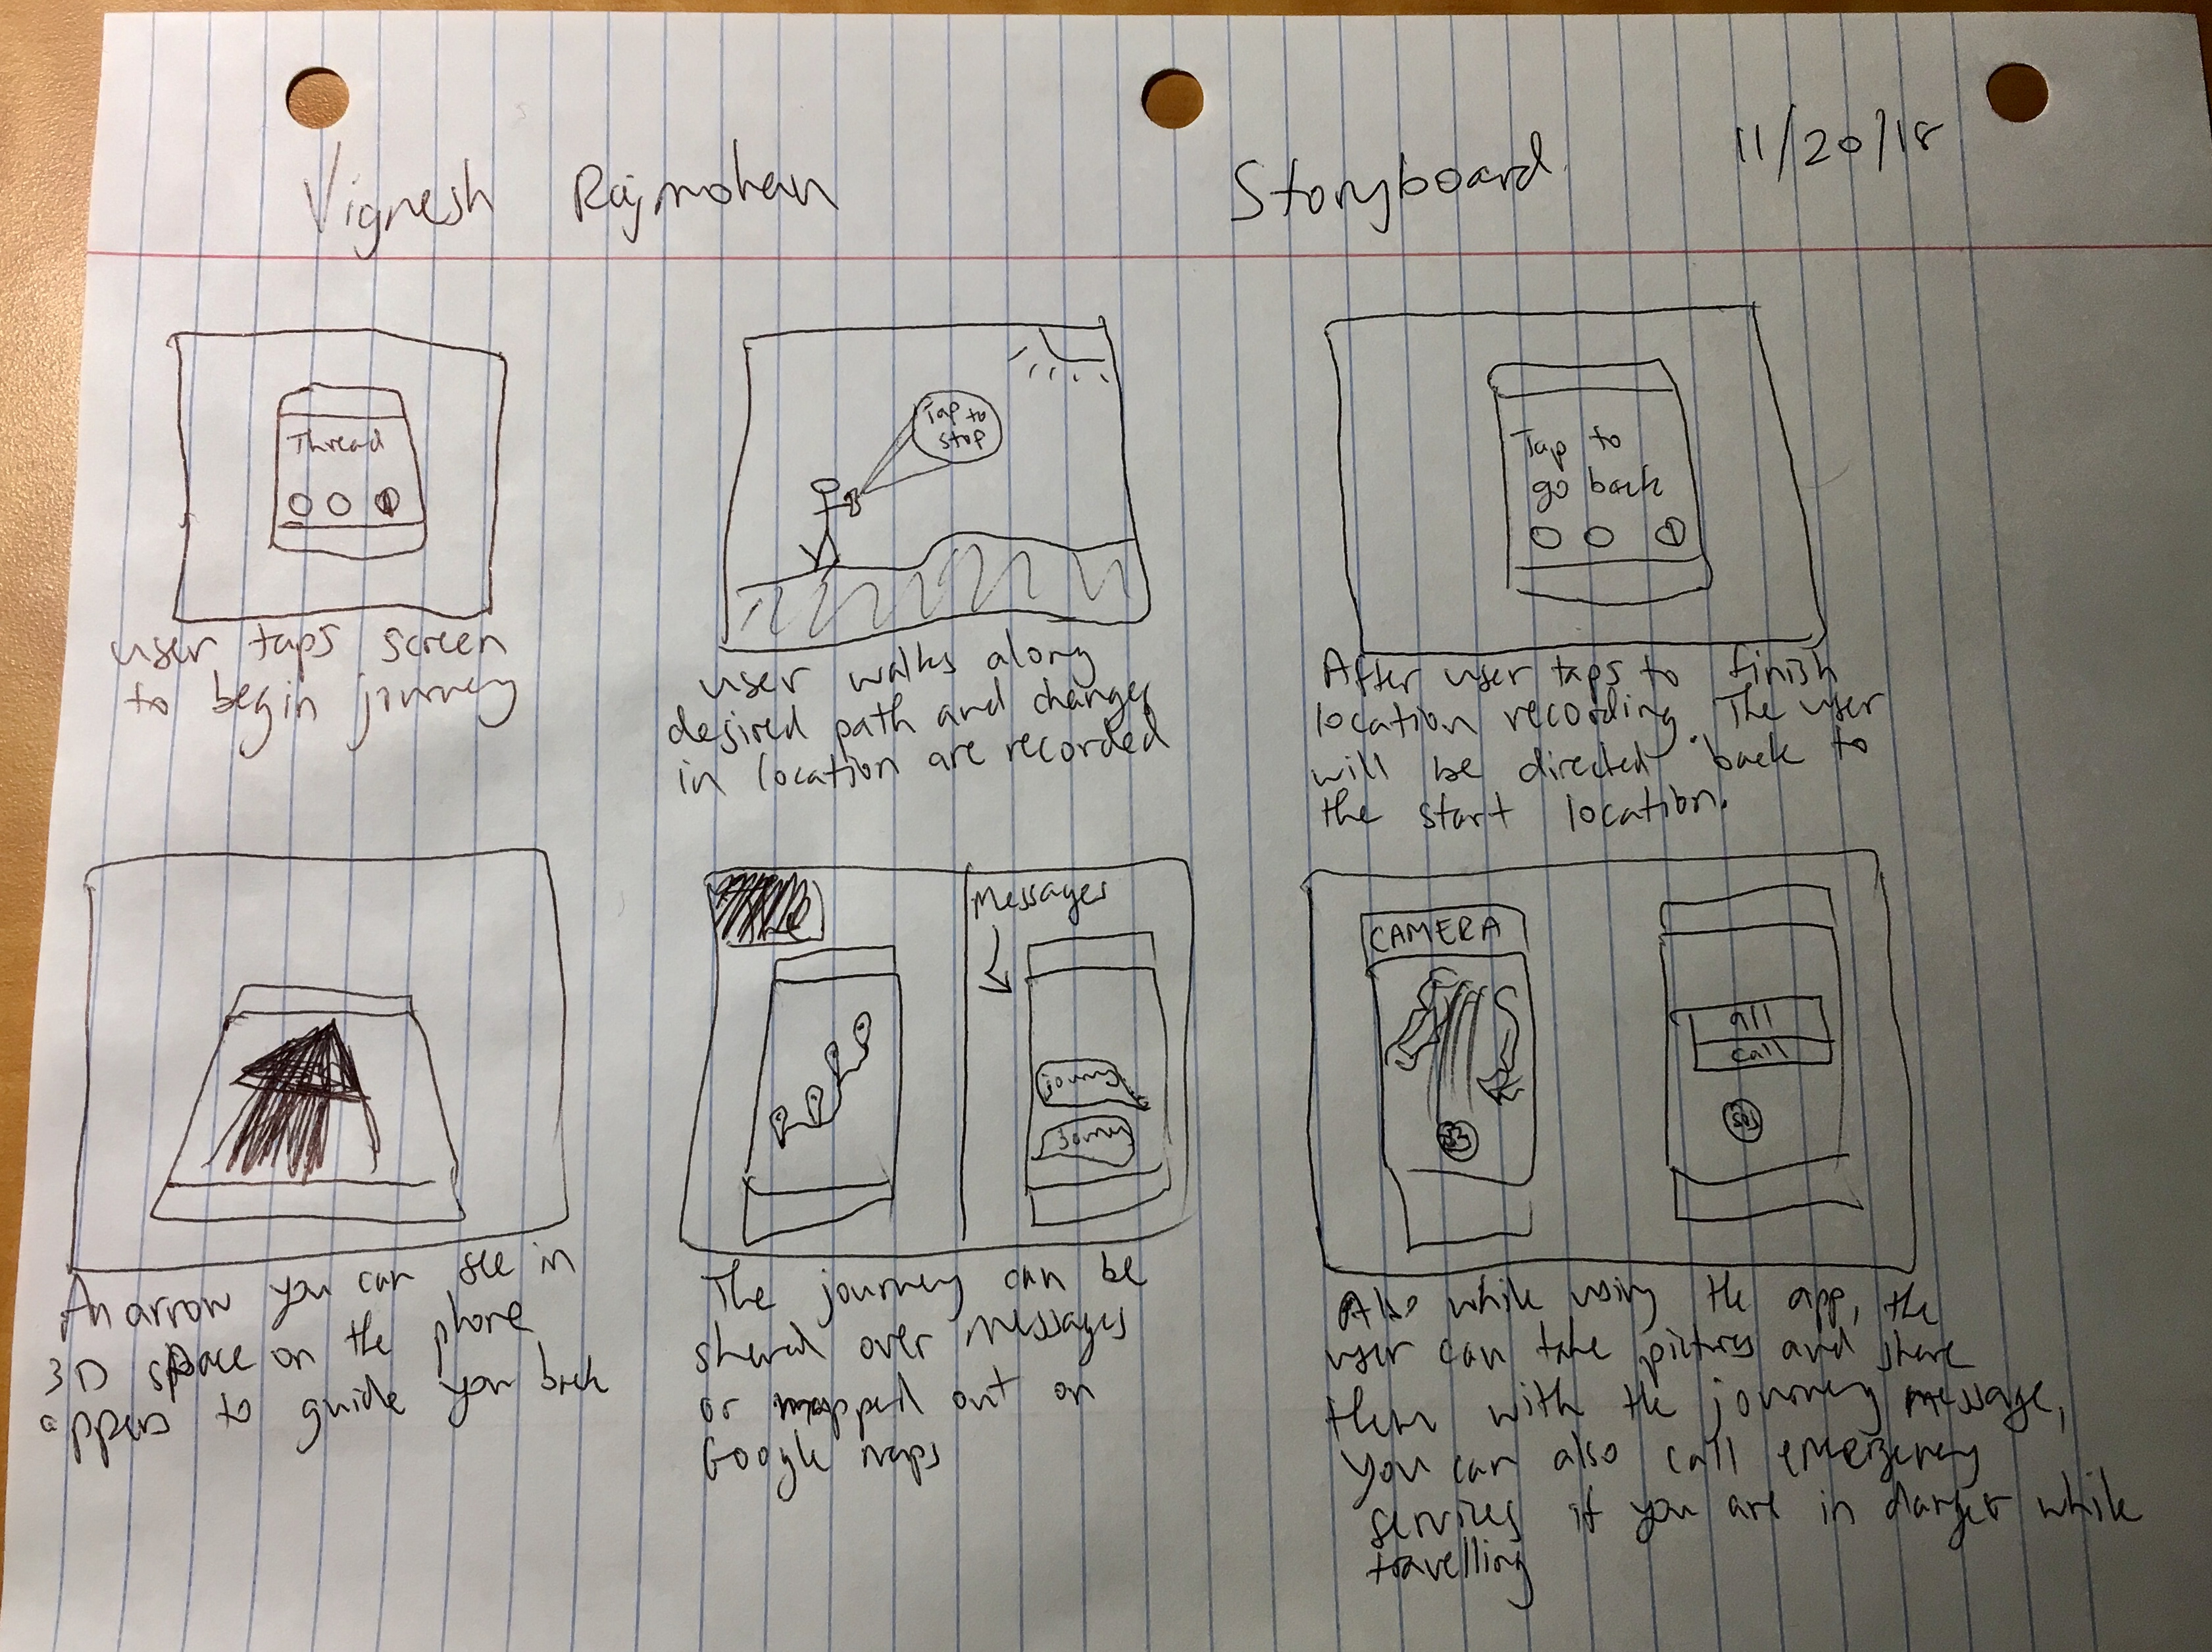 Vignesh Rajmohan
Storyboard
11/20/18
Thread
user taps screen
to begin journey
Tap to
stop
user walks along
desired path and changes
in location are recorded
Tap to
go back
After user taps to finish
location recording. The user
will be directed back to
the start location.
An arrow you can see in
3D space on the phone
appers to guide you back
Messages
journy
Journey
The journey can be
shared over Messages
or mapped out on
Google maps
CAMERA
call
SOS
Also while using the app, the
user can take pictures and share
them with the journey message,
you can also call emergency
services if you are in danger while
travelling